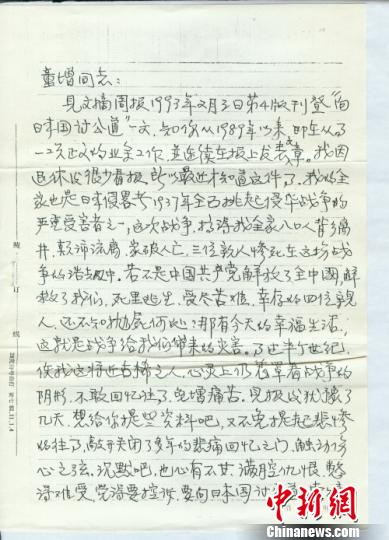 童增同志:
见文摘周报1993年2月3日第4版刊登"向
日本国讨公道"一文,知你从1989年以来,即在从了
一次正义的业余工作,并连续在报上发表文章。我因
退休后很少看报,所以最近才知道这件事。我的全
家也是日本侵略者1937年全面挑起侵华战争的
严重受害者之一,这次战争,搞得我全家八口人背乡离
井,颠沛流离,家破人亡,三位亲人惨死在这场战
争的浩劫中。若不是中国共产党解放了全中国,解
救了我们,死里逃生,受尽苦难,幸存的四位亲
人,还不知抛尸何处!那有今天的幸福生活,
这就是战争给我们带来的灾害。过了半个世纪,
使我这将近古稀之人,心灵上仍笼罩着战争的
阴影,不敢回忆往了,免增痛苦。见报后犹豫了
几天,想给你提些资料吧,又不免提起悲惨
的往了,敲开关闭了多年的悲痛回忆之门,触动伤
心之弦。沉默吧,也心有不甘,满腔仇恨,憋
得难受,觉得要控诉,要向日本国讨
装订线
中新网
Chinanews.com